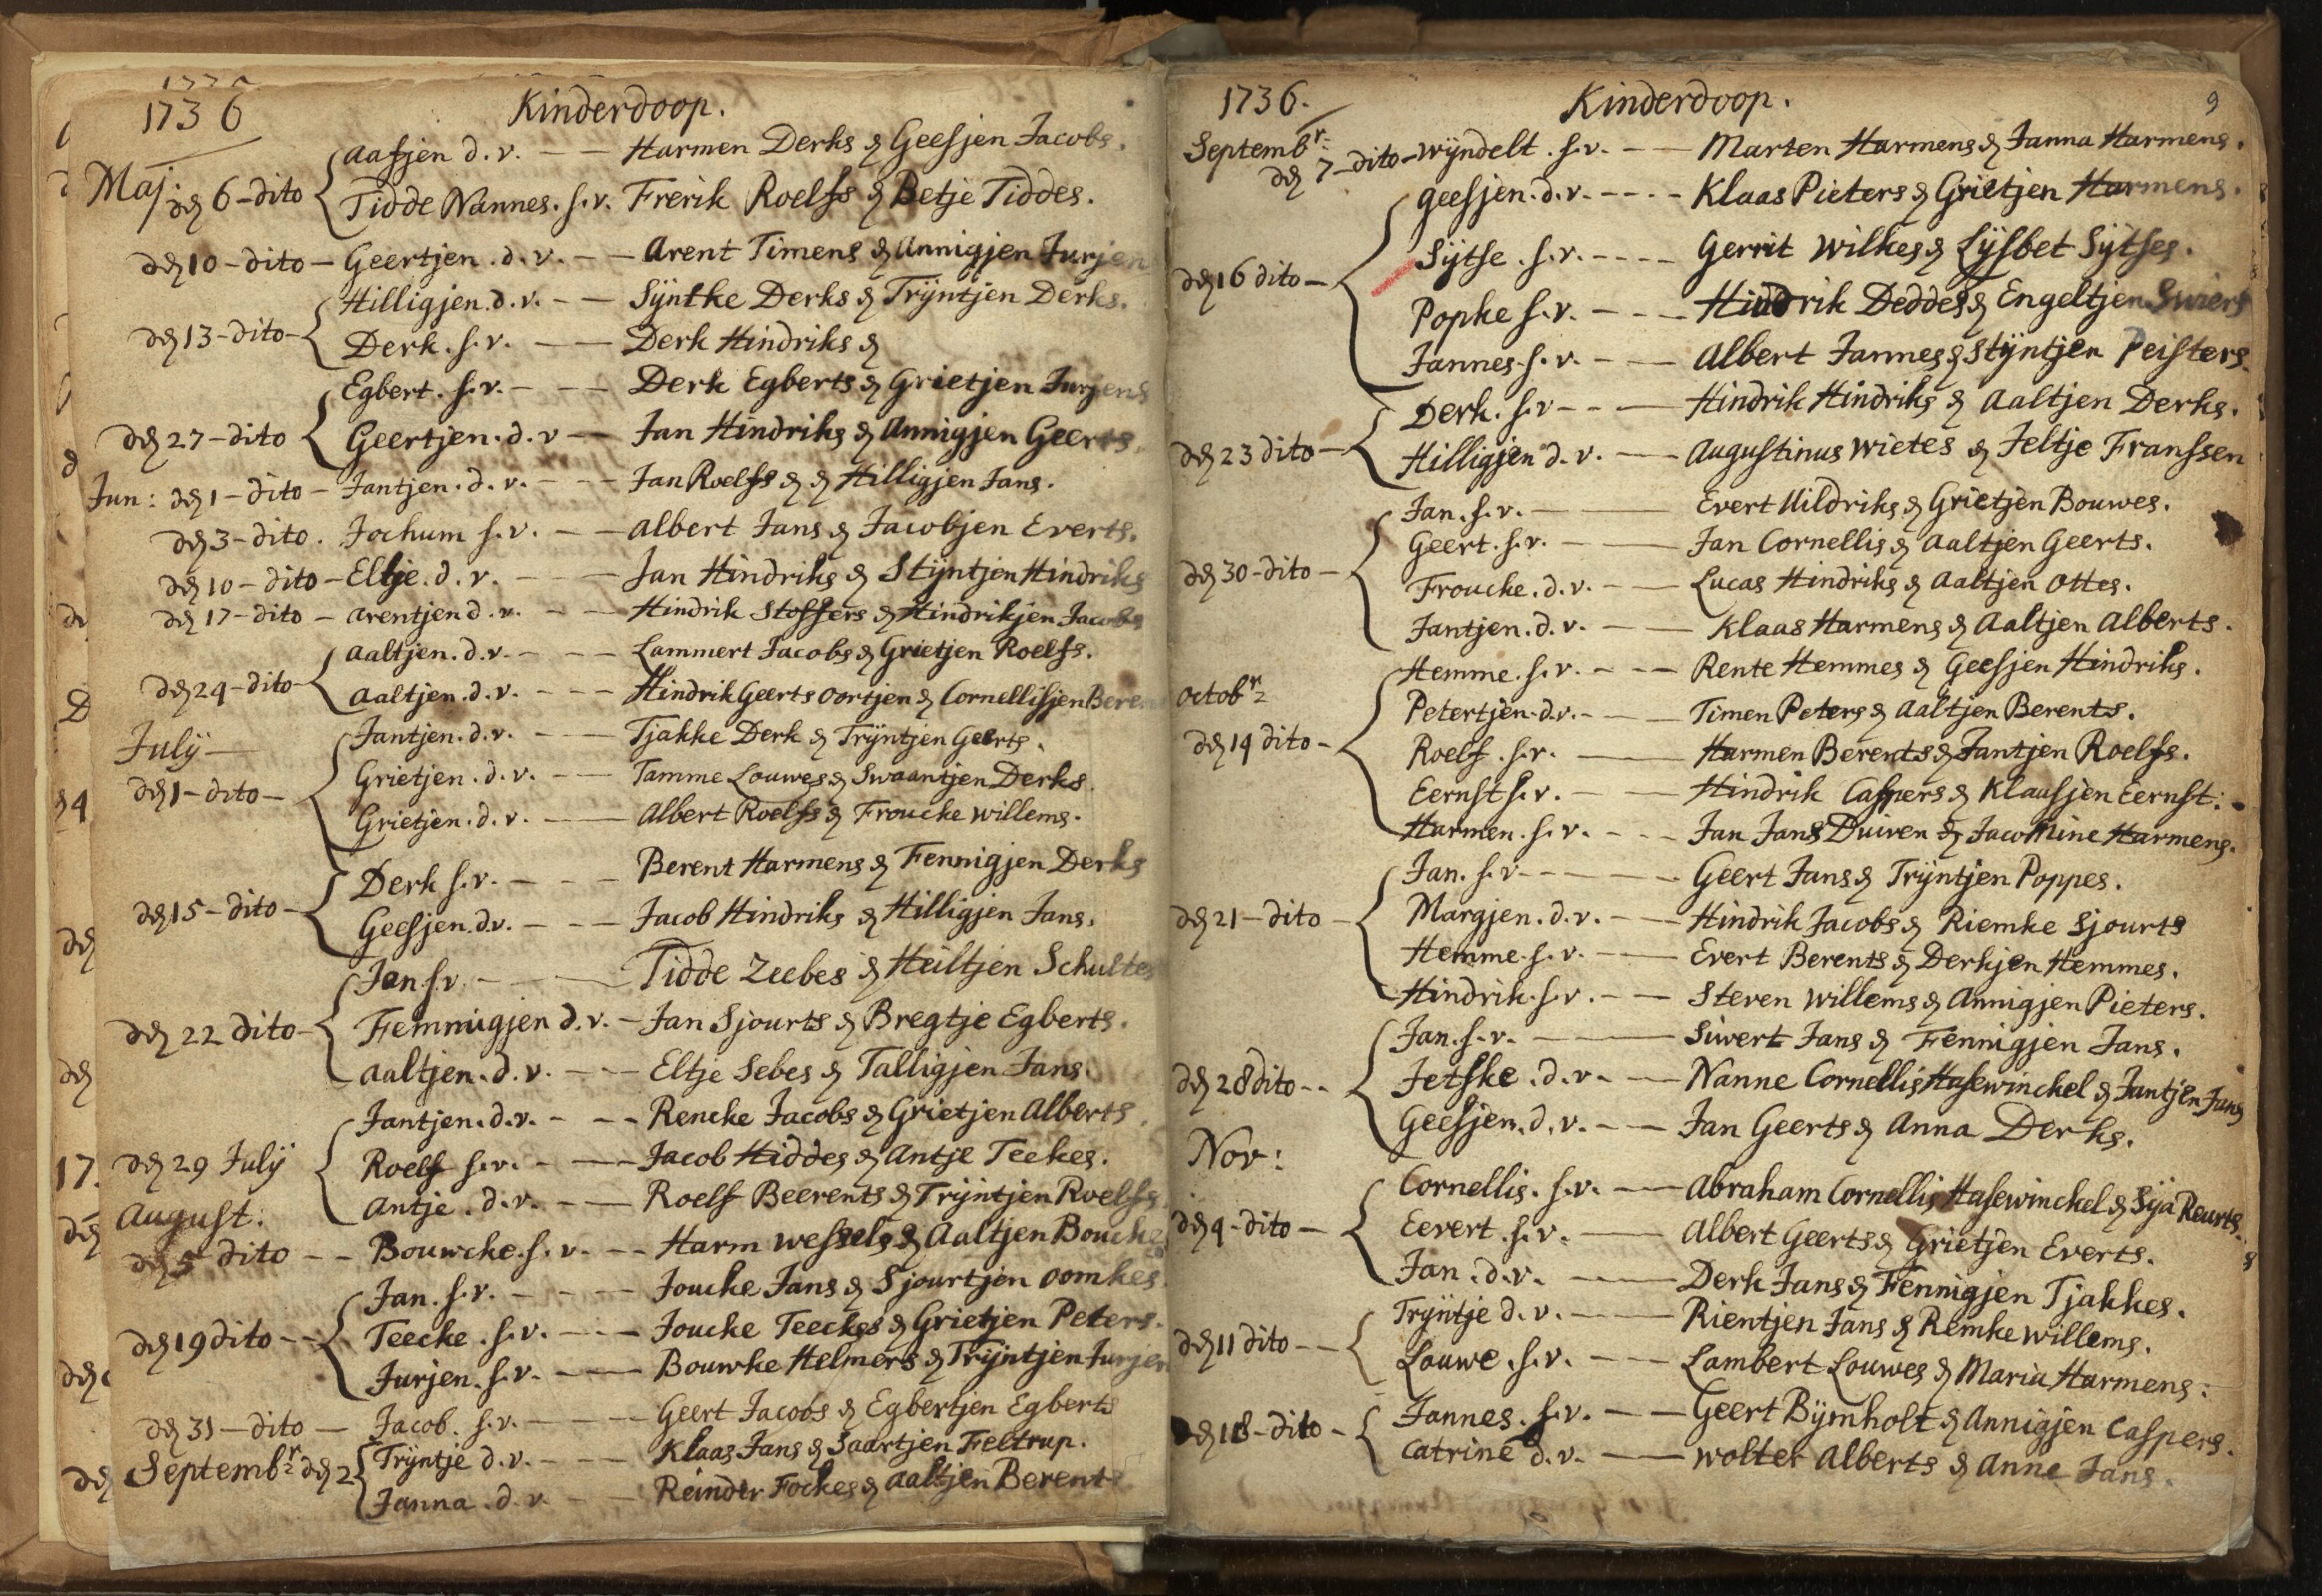 1736
Kinderdoop.
Maj:
Aaſjen d. v. — — Harmen Derks & Geeſjen Jacobs.
deṇ 6 - dito
Tidde Nannes. ſ. v. Frerik Roelfs & Betje Tiddes.
den 10 - dito — Geertjen. d. v. — — Arent Timens & Annigjen Jurjen
Hilligjen. d. v. — — Sÿntke Derks & Trÿntjen Derks.
den 13 - dito —
Derk. ſ. v. — — Derk Hindriks &
Egbert. ſ. v. — — Derk Egberts & Grietjen Jurjens
den 27 - dito
Geertjen. d. v — Jan Hindriks & Annigjen Geerts.
Jun: den 1 - dito — Jantjen. d. v. — — Jan Roelfs & & Hilligjen Jans.
den 3 - dito. Jochum ſ. v. — — Albert Jans & Jacobjen Everts.
den 10 - dito — Eltje. d. v. — — Jan Hindriks & Stÿntjen Hindriks
den 17 - dito — Arentjen d. v. — — Hindrik Stoffers & Hindrikjen Jacobs
Aaltjen. d. v. — — Lammert Jacobs & Grietjen Roelfs.
den 24 - dito
Aaltjen. d. v. — — Hindrik Geerts Oortjen & Cornelliſjen
Julÿ —
Jantjen. d. v. — — Tjakke Derk & Trÿntjen Geerts.
den 1 - dito —
Grietjen. d. v. — — Tamme Louwes & Swaantjen Derks.
Grietjen. d. v. — — Albert Roelfs & Froucke Willems.
Derk ſ. v. — — Berent Harmens & Fennigjen Derks
den 15 - dito —
Geeſjen. d. v. — — Jacob Hindriks & Hilligjen Jans.
Jan ſ. v. — — Tidde Zeebes & Heiltjen Schultes
den 22 dito —
Femmigjen d. v. — Jan Sjourts & Bregtje Egberts.
Aaltjen. d. v. — — Eltje Sebes & Talligjen Jans.
Jantjen. d. v. — — Rencke Jacobs & Grietjen Alberts.
den 29 Julÿ
Roelf ſ. v. — — Jacob Hiddes & Antje Teekes.
Antje. d. v. — — Roelf Beerents & Trÿntjen Roelfs
August:
den 5 dito — — Bouwcke. ſ. v. — — Harm Weſſels & Aaltjen
Jan. ſ. v. — — Joucke Jans & Sjourtjen Oomkes.
den 19 dito — —
Teecke. ſ. v. — — Joucke Teeckes & Grietjen Peters.
Jurjen. ſ. v. — — Bouwke Helmers & Trÿntjen Jurjen
den 31 — dito — Jacob. ſ. v. — — Geert Jacobs & Egbertjen Egberts
Septembr. den 2
Trÿntje d. v. — — Klaas Jans & Saartjen Feltrup.
Janna. d. v. — — Reinder Fockes & Aaltjen Berents
1736.
Kinderdoop.
9
Septembr:
den 7 - dito — Wÿndelt. ſ. v. — — Marten Harmens & Janna Harmens.
Geeſjen. d. v. — — Klaas Pieters & Grietjen Harmens.
Sÿtſe. ſ. v. — — Gerrit Wilkes & Lÿſbet Sÿtſes.
den 16 dito —
Popke ſ. v. — — Hindrik Deddes & Engeltjen Swiers
Jannes. ſ. v. — — Albert Jannes & Stÿntjen Peiſters.
Derk. ſ. v — — Hindrik Hindriks & Aaltjen Derks.
den 23 dito —
Hilligjen d. v. — — Auguſtinus Wietes & Jeltje Franſſen
Jan. ſ. v. — — Evert Uildriks & Grietjen Bouwes.
Geert. ſ. v. — — Jan Cornellis & Aaltjen Geerts.
den 30 - dito —
Froucke. d. v. — — Lucas Hindriks & Aaltjen Ottes.
Jantjen. d. v. — — Klaas Harmens & Aaltjen Alberts.
Hemme. ſ. v. — — Rente Hemmes & Geeſjen Hindriks.
Octobr:
Petertjen. d. v. — — Timen Peters & Aaltjen Berents.
den 14 dito —
Roelf. ſ. v. — — Harmen Berents & Jantjen Roelfs.
Eernſt ſ. v. — — Hindrik Caſpers & Klaasjen Eernſt:
Harmen. ſ. v. — — Jan Jans Duiven & Jacomine Harmens.
Jan. ſ. v — — Geert Jans & Trÿntjen Poppes.
den 21 — dito —
Margjen. d. v. — — Hindrik Jacobs & Riemke Sjourts
Hemme. ſ. v. — — Evert Berents & Derkjen Hemmes.
Hindrik. ſ. v. — — Steven Willems & Annigjen Pieters.
Jan. ſ. v. — — Siwert Jans & Fennigjen Jans.
den 28 dito — —
Jetſke. d. v. — — Nanne Cornellis Haſewinckel & Jantjen Jans
Geeſjen. d. v. — — Jan Geerts & Anna Derks.
Nov:
Cornellis. ſ. v. — — Abraham Cornellis Haſewinckel & Sÿa Reurts.
den 4 - dito —
Eevert. ſ. v. — — Albert Geerts & Grietjen Everts.
Jan. d. v. — — Derk Jans & Fennigjen Tjakkes.
Trÿntje d. v. — — Rientjen Jans & Remke Willems.
den 11 dito — —
Louwe. ſ. v. — — Lambert Louwes & Maria Harmens:
Jannes. ſ. v. — — Geert Bÿmholt & Annigjen Caſpers.
den 18 - dito —
Catrine d. v. — — Wolter Alberts & Anne Jans.